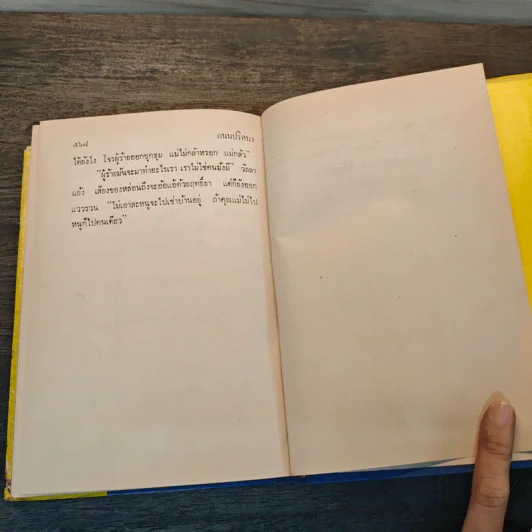 ๕๖๘
ถนนปริศนา
ได้ยังไง โจรผู้ร้ายออกชุกชุม แม่ไม่กล้าหรอก แม่กลัว”
“ผู้ร้ายมันจะมาทำอะไรเรา เราไม่ใช่คนมั่งมี” วัลลา
แย้ง เสียงของหล่อนถึงจะอ้อแอ้ด้วยฤทธิ์ยา แต่ก็ยังออก
แววรวน “ไม่เอาละหนูจะไปเช่าบ้านอยู่ ถ้าคุณแม่ไม่ไป
หนูก็ไปคนเดียว”